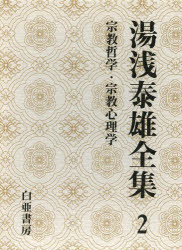 湯浅泰雄全集
2
宗教哲学・宗教心理学
白亜書房